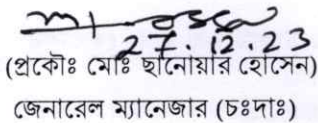 27.12.23
(প্রকৌঃ মোঃ ছানোয়ার হোসেন)
জেনারেল ম্যানেজার (চঃদাঃ)